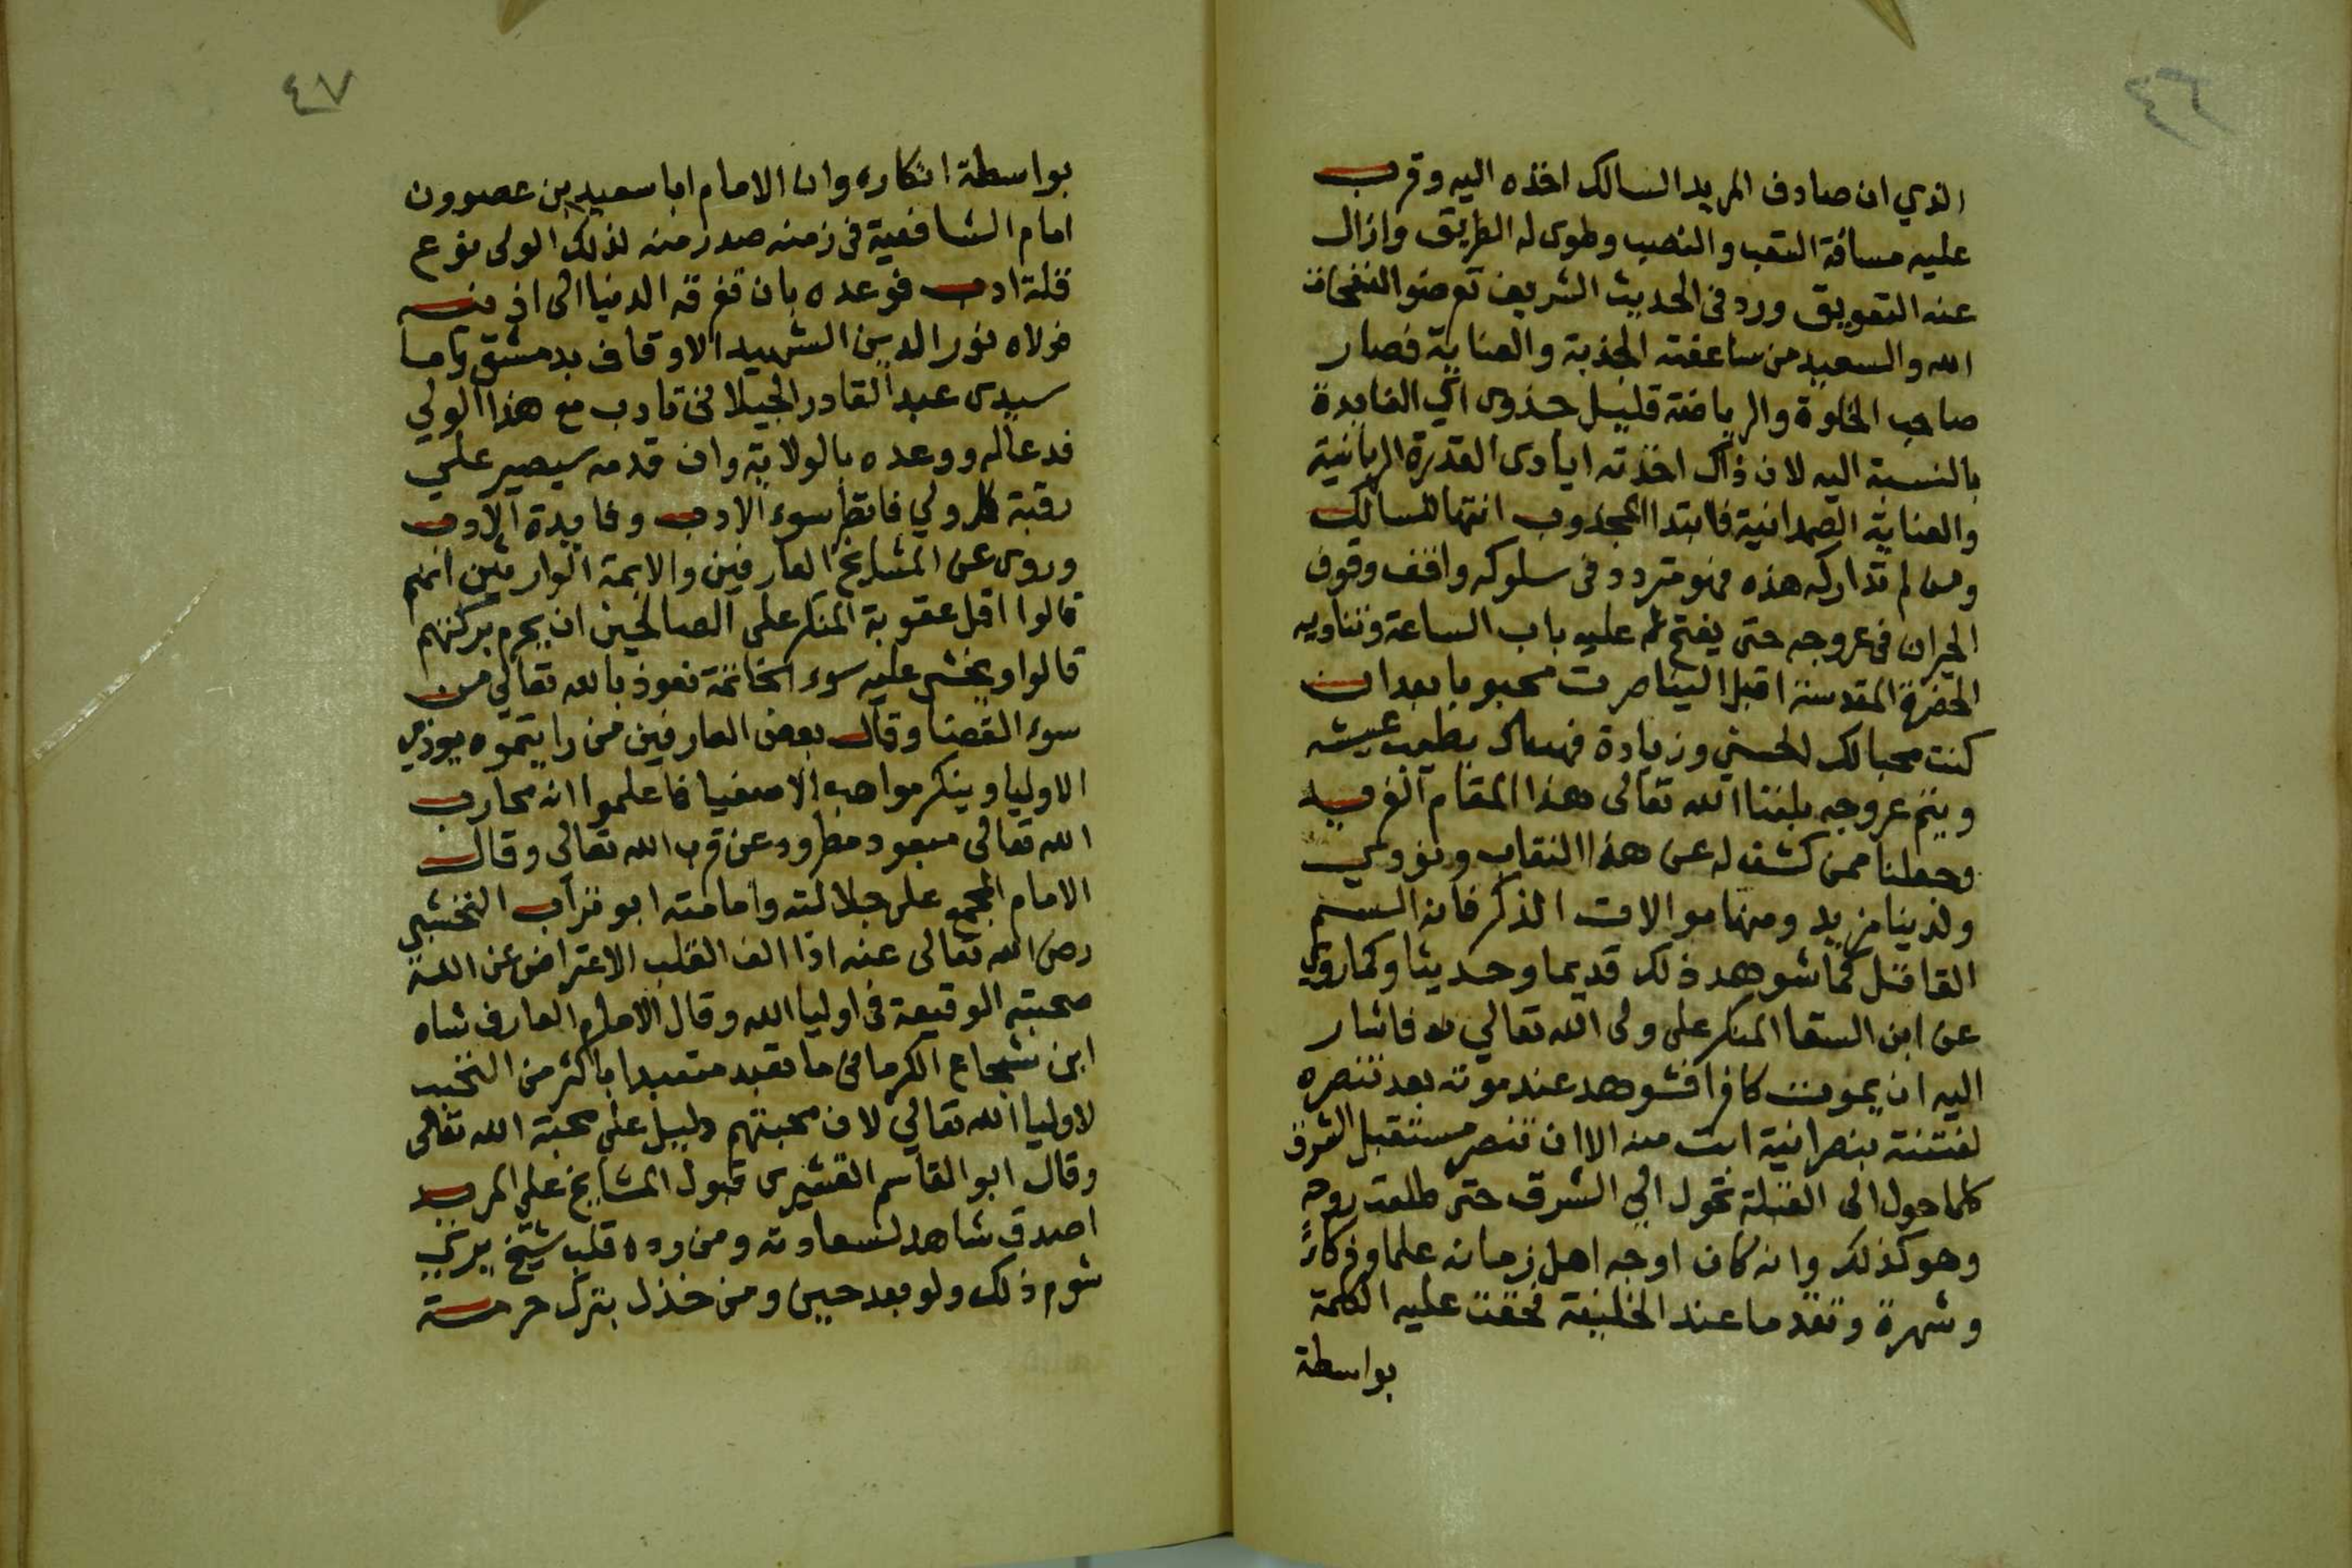 ٤٦
الذي ان صادف المريد السالك اخذه اليه وقرب
عليه مسافة التعب والنصب وطوى له الطريق وازال
عنه التعويق ورد في الحديث الشريف تعرضوا لنفحات
الله والسعيد من ساعفته الجذبة والعناية فصار
صاحب الخلوة والرياضة قليل جذوى اي الفايدة
بالنسبة اليه لان ذاك اخذته ايادى القدرة الربانية
والعناية الصمدانية فابتدا المجذوب انتها السالك
ومن لم تداركه هذه فهو متردد في سلوكه واقف وقوف
الحيران في عروجه حتى يفتح له عليه باب الساعة وتناديه
الحضرة المقدسة اقبل الينا صرت محبوبا بعد ان
كنت محبا لك الحسني وزيادة فهناك يطيب عيشه
ويتم عروجه بلغنا الله تعالى هذا المقام الفريد
وجعلنا ممن كشف له عن هذا النقاب ونودي
ولدينا مزيد ومنها موالات الذكر فانه السم
القاتل كما شوهد ذلك قديما وحديثا وكما روي
عن ابن السقا المنكر على ولى الله تعالي فاشار
اليه ان يموت كافرا فشوهد عند موته بعد تنصره
لفتنة بنصرانية ابت منه الا ان تنصر مستقبل الشرق
كلما حول الى القبلة تحول الي الشرق حتى طلعت روحه
وهو كذلك وانه كان اوجه اهل زمانه علما وذكاء
وشهرة وتقدما عند الخليفة فحقت عليه الكلمة
بواسطة
٤٧
بواسطة انكاره وان الامام ابا سعيد بن عصرون
امام الشافعية في زمنه صدر منه لذلك الولى نوع
قلة ادب فوعده بان تغرقه الدنيا الى اذنيه
فولاه نور الدين الشهيد الاوقاف بدمشق واما
سيدى عبد القادر الجيلاني تادب مع هذا الولي
فدعا له ووعده بالولاية وان قدمه سيصير علي
رقبة كل ولي فانظر سوء الادب وفايدة الادب
وروى عن المشايخ العارفين والايمة الوارثين انهم
قالوا اقل عقوبة المنكر على الصالحين ان يحرم بركتهم
قالوا ويخشى عليه سوء الخاتمة نعوذ بالله تعالي من
سوء القضا وقال بعض العارفين من رايتموه يوذي
الاوليا وينكر مواهب الاصفيا فاعلموا انه محارب
الله تعالى مبعود مطرود عن قرب الله تعالي وقال
الامام المجمع على جلالته وامامته ابو تراب النخشبي
رضى الله تعالى عنه اذا الف القلب الاعتراض عن الله
صحبته الوقيعة في اوليا الله وقال الامام العارف شاه
ابن شجاع الكرماني ما تعبد متعبد باكثر من التحبب
لاوليا الله تعالي لان محبتهم دليل على محبة الله تعالى
وقال ابو القاسم القشيرى قبول المشايخ على المريد
اصدق شاهد لسعادته ومن رده قلب شيخ يرى
شوم ذلك ولو بعد حين ومن خذل بترك حرمة